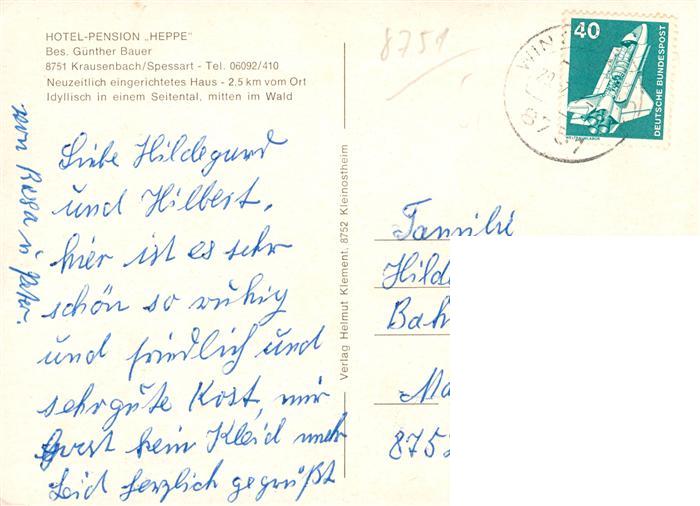 HOTEL-PENSION „HEPPE"
Bes. Günther Bauer
8751 Krausenbach/Spessart - Tel. 06092/410
Neuzeitlich eingerichtetes Haus - 2.5 km vom Ort
Idyllisch in einem Seitental, mitten im Wald
Liebe Hildegard
und Hilbert,
hier ist es sehr
schön so ruhig
und friedlich und
sehr gute Kost, mir
kein Kleid mehr
Leid herzlich gegrüßt
von
Verlag Helmut Klement, 8752 Kleinostheim
8751
40
DEUTSCHE BUNDESPOST
WELTRAUMLABOR
Familie
Hilde
Bah
Ma
875